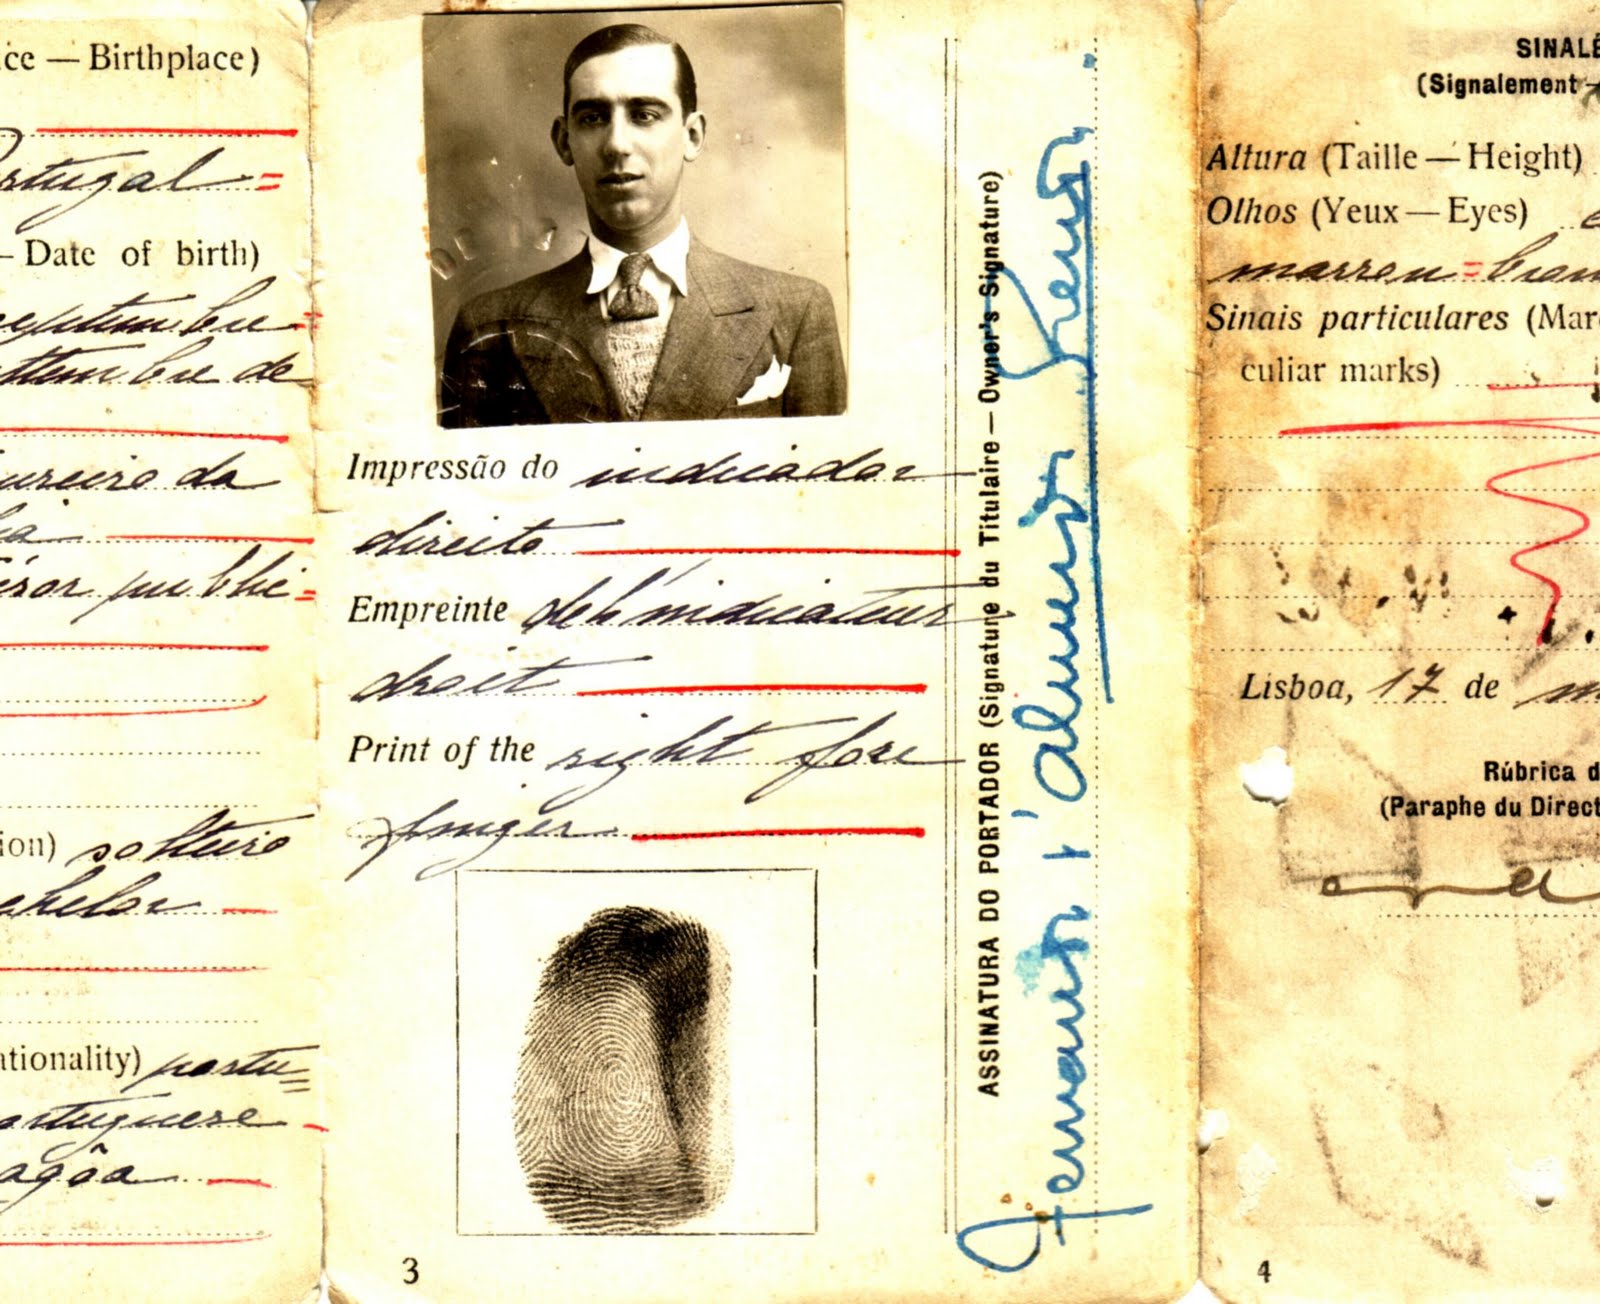 ce — Birthplace)
Portugal =
— Date of birth)
septembre =
de
ureiro da
publie =
ion) solteiro
achelor
ationality) portu =
ortuguese
agôa
Impressão do indicador
direito
Empreinte de l'indicateur
droit
Print of the right fore
finger
3
ASSINATURA DO PORTADOR (Signature du Titulaire — Owner's Signature)
Fernando d'Almeida
SINALÉ
(Signalement —
Altura (Taille — Height)
Olhos (Yeux — Eyes)
marron = brown
Sinais particulares (Mar
culiar marks)
Lisboa, 17 de
Rúbrica d
(Paraphe du Direct
4